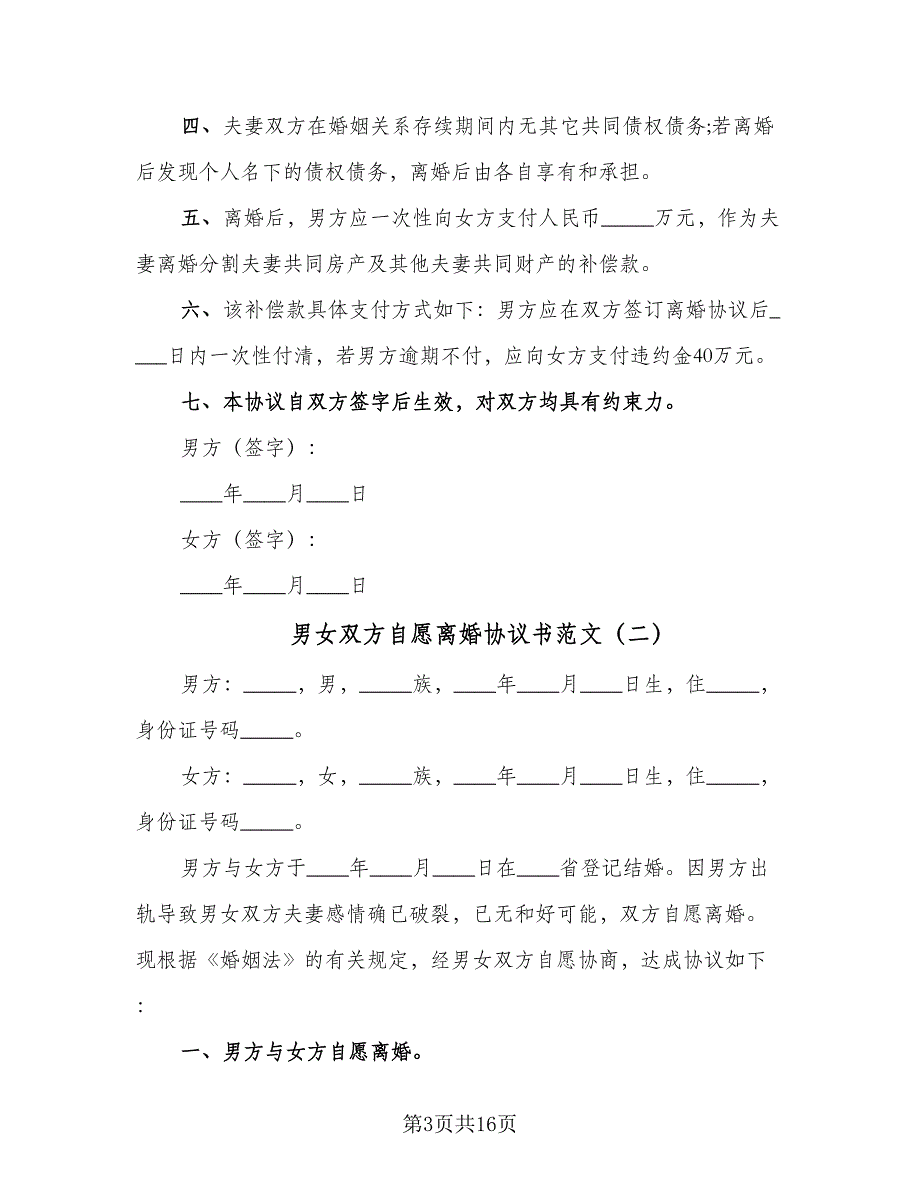 四、夫妻双方在婚姻关系存续期间内无其它共同债权债务;若离婚
后发现个人名下的债权债务，离婚后由各自享有和承担。
五、离婚后，男方应一次性向女方支付人民币_____万元，作为夫
妻离婚分割夫妻共同房产及其他夫妻共同财产的补偿款。
六、该补偿款具体支付方式如下：男方应在双方签订离婚协议后_
___日内一次性付清，若男方逾期不付，应向女方支付违约金40万元。
七、本协议自双方签字后生效，对双方均具有约束力。
男方（签字）：
____年____月____日
女方（签字）：
____年____月____日
男女双方自愿离婚协议书范文（二）
男方：_____，男，_____族，____年____月____日生，住_____，
身份证号码_____。
女方：_____，女，_____族，____年____月____日生，住_____，
身份证号码_____。
男方与女方于____年____月____日在____省登记结婚。因男方出
轨导致男女双方夫妻感情确已破裂，已无和好可能，双方自愿离婚。
现根据《婚姻法》的有关规定，经男女双方自愿协商，达成协议如下
：
一、男方与女方自愿离婚。
第3页共16页